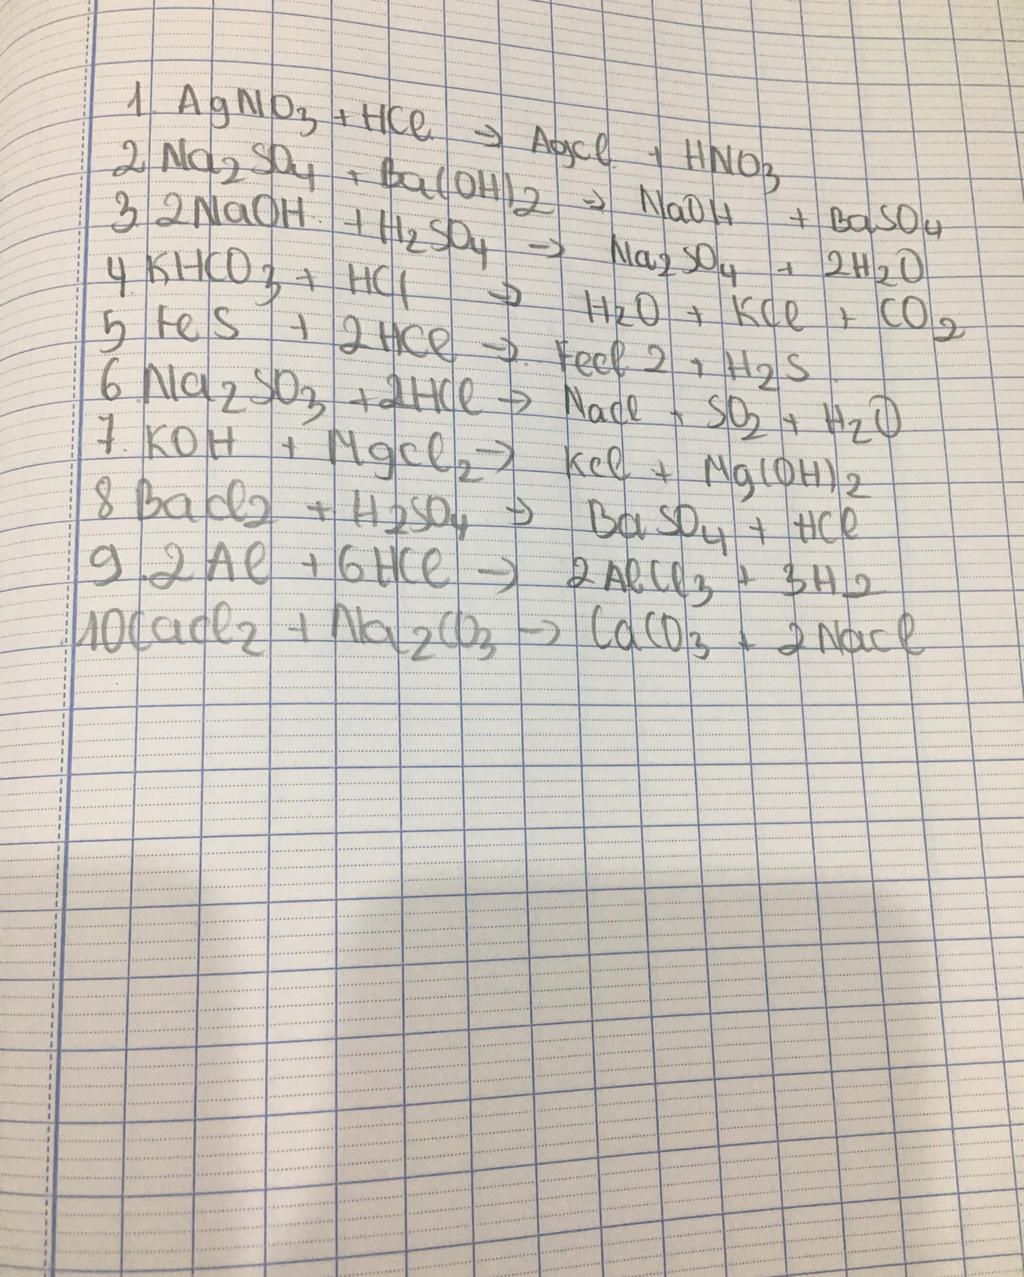 1. AgNO3 + HCl → AgCl + HNO3
2 Na2SO4 + Ba(OH)2 → NaOH + BaSO4
3. 2NaOH + H2SO4 → Na2SO4 + 2H2O
4 KHCO3 + HCl → H2O + KCl + CO2
5 FeS + 2HCl → Fecl2 + H2S
6 Na2SO3 + 2HCl → Nacl + SO2 + H2O
7. KOH + Mgcl2 → Kcl + Mg(OH)2
8 Bacl2 + H2SO4 → BaSO4 + HCl
9. 2Al + 6HCl → 2AlCl3 + 3H2
10 Cacl2 + Na2CO3 → CaCO3 + 2Nacl